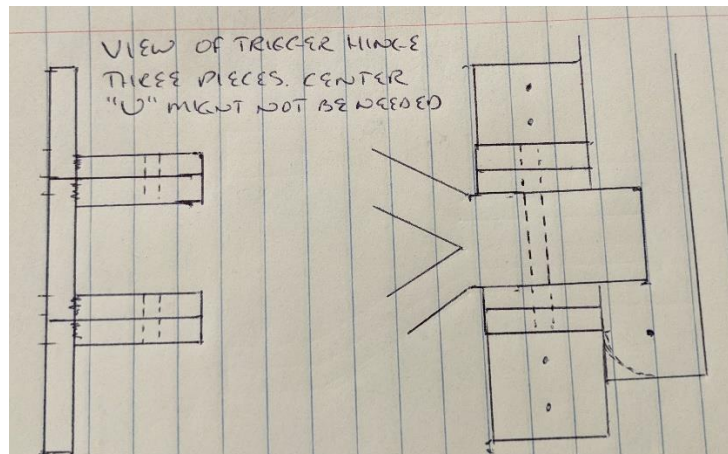 VIEW OF TRIGGER HINGE
THREE PIECES. CENTER
"U" MIGHT NOT BE NEEDED